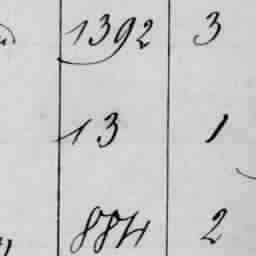 1392 3
13 1
884 2